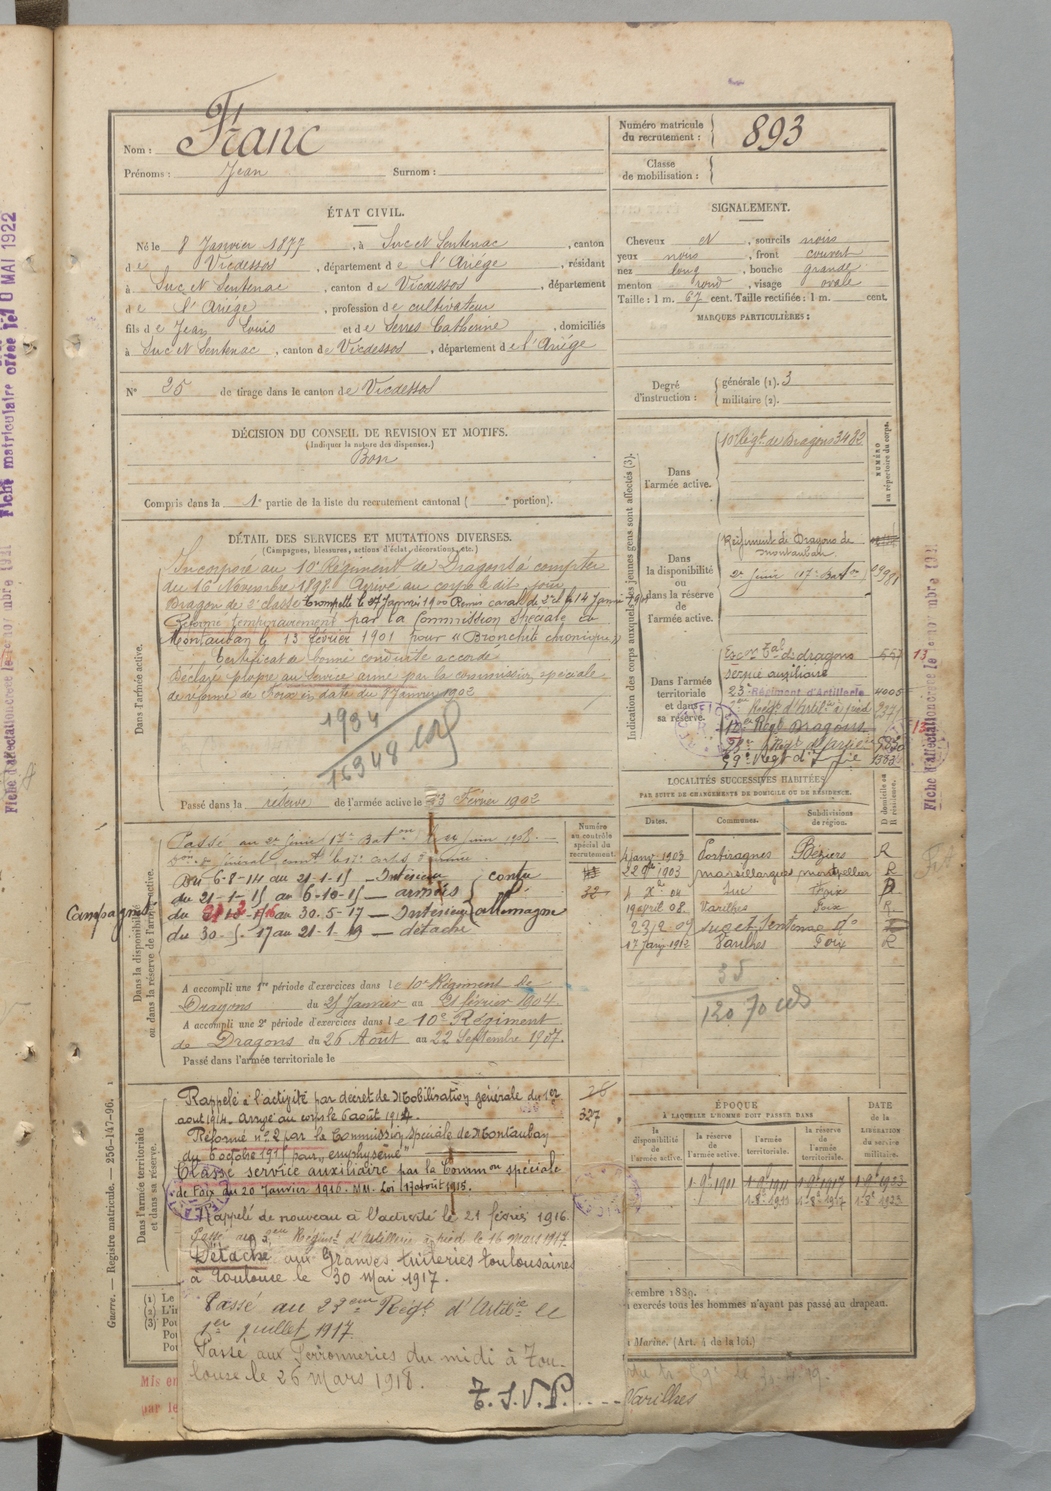 Nom : Franc
Prénoms : Jean Surnom :
Numéro matricule du recrutement : 893
Classe de mobilisation :
ÉTAT CIVIL.
Né le 8 Janvier 1877, à Suc et Sentenac, canton
de Vicdessos, département de l'Ariège, résidant
à Suc et Sentenac, canton de Vicdessos, département
de l'Ariége, profession de cultivateur
fils de Jean Louis et de Serres Catherine, domiciliés
à Suc et Sentenac, canton de Vicdessos, département de l'Ariége
N° 25 de tirage dans le canton de Vicdessos
SIGNALEMENT.
Cheveux et, sourcils noirs
yeux noirs, front couvert
nez long, bouche grande
menton rond, visage ovale
Taille : 1 m. 67 cent. Taille rectifiée : 1 m. cent.
MARQUES PARTICULIÈRES :
Degré d'instruction : générale (1). 3
militaire (2).
DÉCISION DU CONSEIL DE REVISION ET MOTIFS.
(Indiquer la nature des dispenses.)
Bon
Compris dans la 1e partie de la liste du recrutement cantonal ( e portion).
DÉTAIL DES SERVICES ET MUTATIONS DIVERSES.
(Campagnes, blessures, actions d'éclat, décorations, etc.)
Dans l'armée active.
Incorporé au 10e Régiment de Dragons à compter
du 16 Novembre 1898. Arrivé au corps le dit jour
Dragon de 2e classe Trompette le 27 Janvier 1900 Remis cavalier de 2e cl le 14 Janvier 1901
Réformé temporairement par la Commission spéciale de
Montauban le 13 février 1901 pour « Bronchite chronique »
Certificat de bonne conduite accordé
Déclaré propre au service armé par la commission spéciale
de réforme de Foix en date du 8 janvier 1902
1934
16948
Passé dans la réserve de l'armée active le 23 Février 1902
Indication des corps auxquels les jeunes gens sont affectés (3).
NUMÉRO au répertoire du corps.
Dans l'armée active.
10e Régt de Dragons 3482
Dans la disponibilité ou dans la réserve de l'armée active.
Régiment de Dragons de
Montauban
Dans l'armée territoriale et dans sa réserve.
Escon Tal de dragons
service auxiliaire
23e Régiment d'Artillerie 4005
Régt d'Artie à pied
Régt Dragons
59e Régt d'Infie
13
LOCALITÉS SUCCESSIVES HABITÉES
PAR SUITE DE CHANGEMENTS DE DOMICILE OU DE RÉSIDENCE.
Dates. Communes. Subdivisions de région. D domicile ou R résidence.
4 Janv 1903 Portiragnes Béziers R
22 9bre 1903 Marseillargues Montpellier R
Suc Foix R
19 avril 08. Varilhes Foix R.
23/2 09 Suc et Sentenac do
17 Janv. 1912 Varilhes Foix R
35
120 70
Dans la disponibilité ou dans la réserve de l'armée active.
Numéro au contrôle spécial du recrutement.
Passé au 2e Génie 17e Baton
Campagnes
du 6-8-14 au 21-1-15 — Intérieur
du 21-1-15 au 6-10-15 — armées
du 21-2-16 au 30.5-17 — Intérieur
du 30.5.17 au 21-1-19 — détaché
contre allemagne
32
A accompli une 1re période d'exercices dans le 10e Régiment de
Dragons du 25 Janvier au 21 février 1904
A accompli une 2e période d'exercices dans le 10e Régiment
de Dragons du 26 Août au 22 Septembre 1907.
Passé dans l'armée territoriale le
Dans l'armée territoriale et dans sa réserve.
Rappelé à l'activité par décret de Mobilisation générale du 1er
aout 1914. Arrivé au corps le 6 août 1914.
Réformé n° 2 par la Commission spéciale de Montauban
du 6 octobre 1915 pour "emphysème"
Classé service auxiliaire par la Common spéciale
de Foix du 20 Janvier 1916. MM. Loi 17 août 1915.
Rappelé de nouveau à l'activité le 21 février 1916.
Passé au 3eme Régiment d'Artillerie à pied le 16 Mars 1917.
Détaché aux Grandes tuileries toulousaines
à Toulouse le 30 Mai 1917.
Passé au 23eme Régt d'Artie le
1er Juillet 1917
Passé aux Ferronneries du midi à Tou-
louse le 26 Mars 1918.
T.S.V.P.
327
ÉPOQUE
À LAQUELLE L'HOMME DOIT PASSER DANS
DATE de la LIBÉRATION du service militaire.
la disponibilité de l'armée active. la réserve de l'armée active. l'armée territoriale. la réserve de l'armée territoriale.
1-9bre 1911 1-9bre 1911 1-9bre 1917 1-9bre 1923
cembre 1889.
à exercés tous les hommes n'ayant pas passé au drapeau.
Marine. (Art. 4 de la loi.)
Varilhes
Guerre. — Registre matricule. — 256-147-96.
(1) Le
(2) L'in
(3) Pou
Pou
Pou
Mis en
par le
Fiche matriculaire créée le 10 MAI 1922
Fiche d'affectation créée le